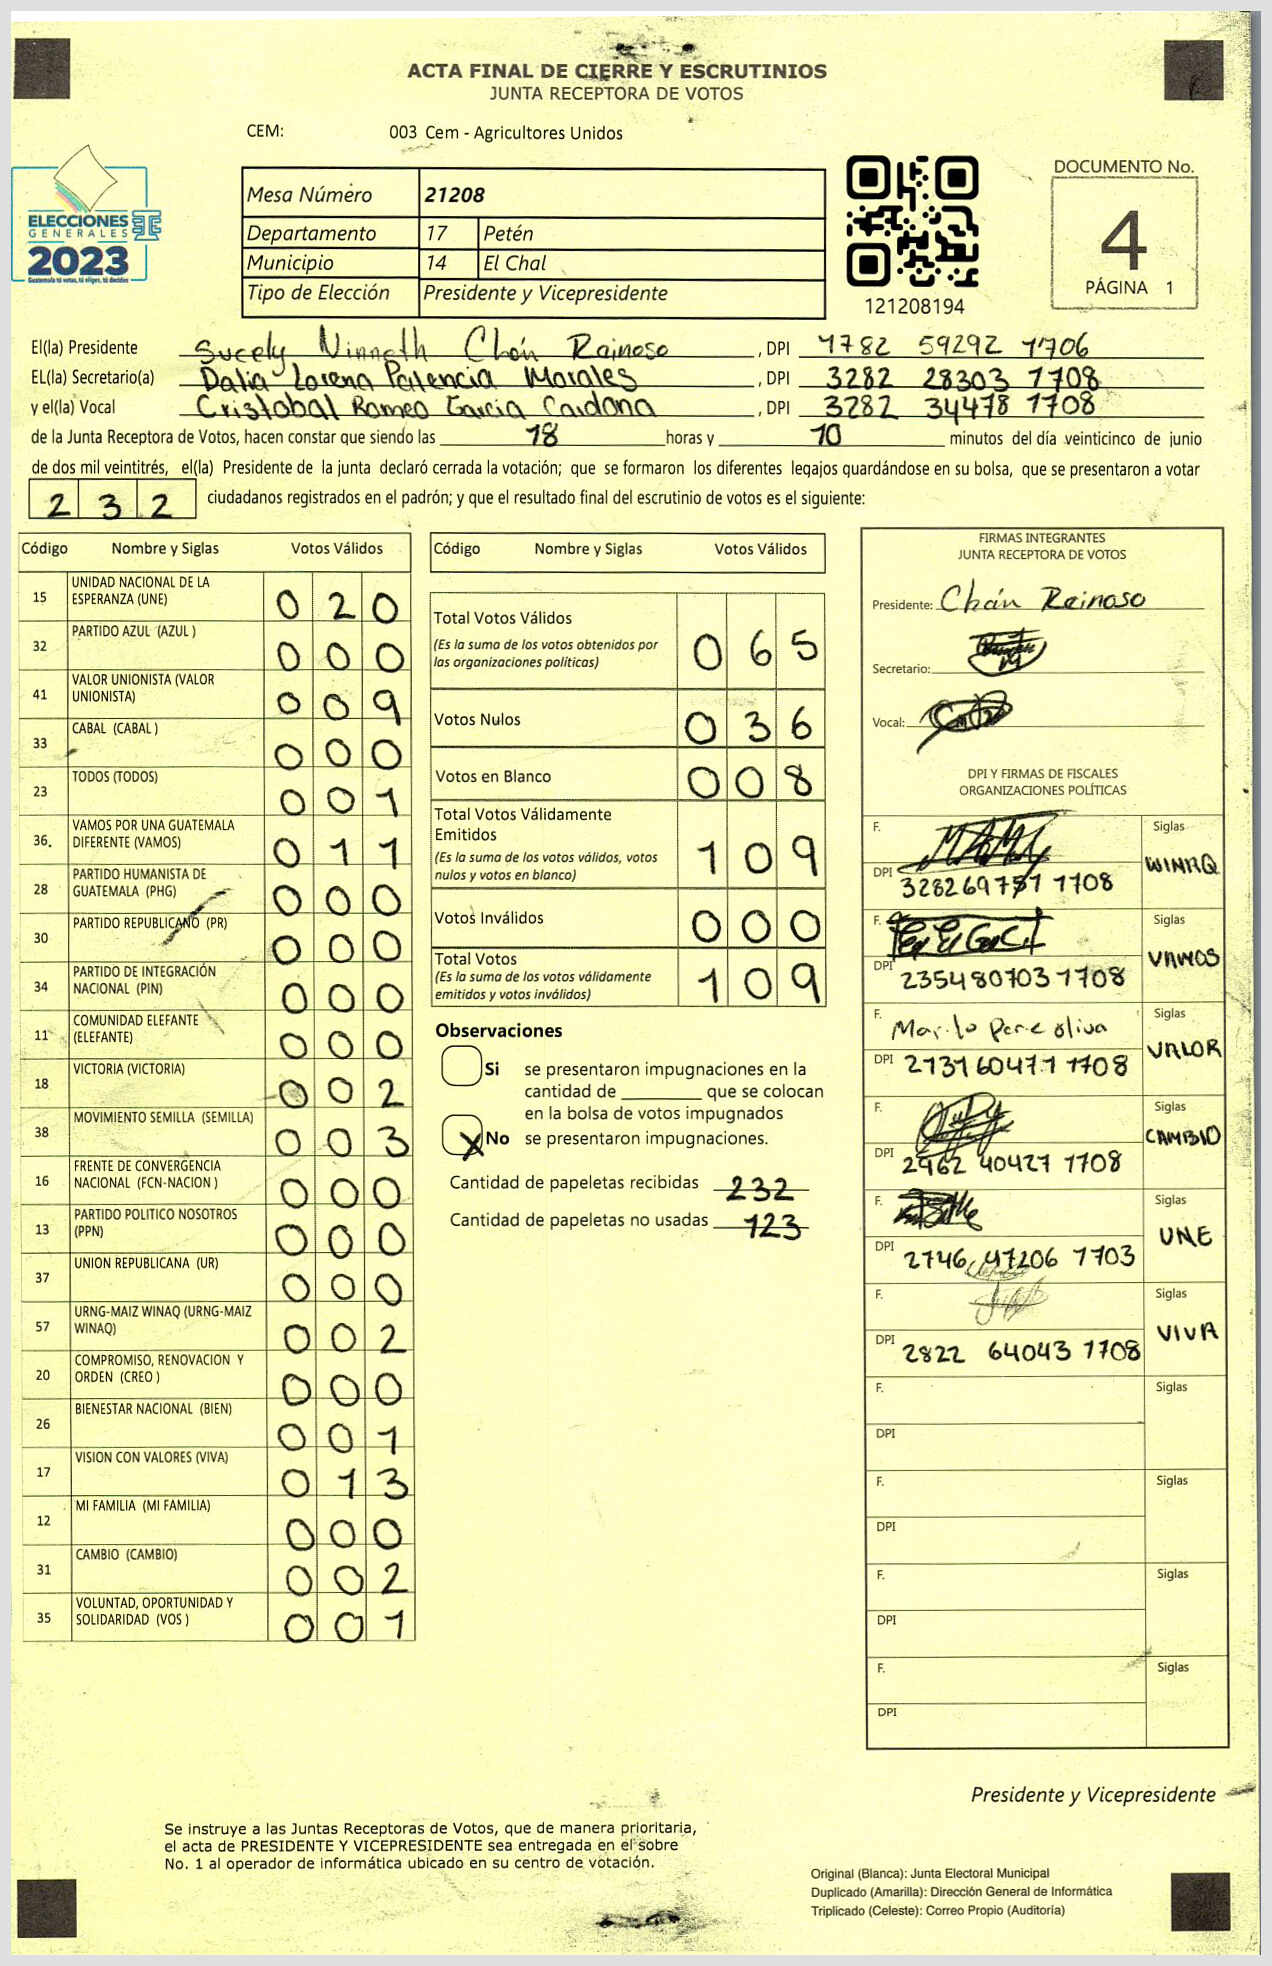 ACTA FINAL DE CIERRE Y ESCRUTINIOS
JUNTA RECEPTORA DE VOTOS
CEM: 003 Cem - Agricultores Unidos
ELECCIONES
GENERALES
2023
Guatemala tú votas, tú eliges, tú decides
Mesa Número 21208
Departamento 17 Petén
Municipio 14 El Chal
Tipo de Elección Presidente y Vicepresidente
121208194
DOCUMENTO No.
4
PÁGINA 1
El(la) Presidente Sucely Ninneth Chán Reinoso , DPI 1782 59292 1706
EL(la) Secretario(a) Dalia Lorena Palencia Morales , DPI 3282 28303 1708
y el(la) Vocal Cristobal Romeo Garcia Cardona , DPI 3282 34478 1708
de la Junta Receptora de Votos, hacen constar que siendo las 18 horas y 10 minutos del día veinticinco de junio
de dos mil veintitrés, el(la) Presidente de la junta declaró cerrada la votación; que se formaron los diferentes legajos quardándose en su bolsa, que se presentaron a votar
232 ciudadanos registrados en el padrón; y que el resultado final del escrutinio de votos es el siguiente:
Código Nombre y Siglas Votos Válidos
15 UNIDAD NACIONAL DE LA
ESPERANZA (UNE) 0 2 0
32 PARTIDO AZUL (AZUL ) 0 0 0
41 VALOR UNIONISTA (VALOR
UNIONISTA) 0 0 9
33 CABAL (CABAL ) 0 0 0
23 TODOS (TODOS) 0 0 1
36. VAMOS POR UNA GUATEMALA
DIFERENTE (VAMOS) 0 1 1
28 PARTIDO HUMANISTA DE
GUATEMALA (PHG) 0 0 0
30 PARTIDO REPUBLICANO (PR) 0 0 0
34 PARTIDO DE INTEGRACIÓN
NACIONAL (PIN) 0 0 0
11 COMUNIDAD ELEFANTE
(ELEFANTE) 0 0 0
18 VICTORIA (VICTORIA) 0 0 2
38 MOVIMIENTO SEMILLA (SEMILLA) 0 0 3
16 FRENTE DE CONVERGENCIA
NACIONAL (FCN-NACION ) 0 0 0
13 PARTIDO POLITICO NOSOTROS
(PPN) 0 0 0
37 UNION REPUBLICANA (UR) 0 0 0
57 URNG-MAIZ WINAQ (URNG-MAIZ
WINAQ) 0 0 2
20 COMPROMISO, RENOVACION Y
ORDEN (CREO ) 0 0 0
26 BIENESTAR NACIONAL (BIEN) 0 0 1
17 VISION CON VALORES (VIVA) 0 1 3
12 MI FAMILIA (MI FAMILIA) 0 0 0
31 CAMBIO (CAMBIO) 0 0 2
35 VOLUNTAD, OPORTUNIDAD Y
SOLIDARIDAD (VOS ) 0 0 1
Código Nombre y Siglas Votos Válidos
Total Votos Válidos 0 6 5
(Es la suma de los votos obtenidos por
las organizaciones políticas)
Votos Nulos 0 3 6
Votos en Blanco 0 0 8
Total Votos Válidamente
Emitidos 1 0 9
(Es la suma de los votos válidos, votos
nulos y votos en blanco)
Votos Inválidos 0 0 0
Total Votos 1 0 9
(Es la suma de los votos válidamente
emitidos y votos inválidos)
Observaciones
Si se presentaron impugnaciones en la
cantidad de ________ que se colocan
en la bolsa de votos impugnados
X No se presentaron impugnaciones.
Cantidad de papeletas recibidas 232
Cantidad de papeletas no usadas 123
FIRMAS INTEGRANTES
JUNTA RECEPTORA DE VOTOS
Presidente: Chán Reinoso
Secretario:
Vocal:
DPI Y FIRMAS DE FISCALES
ORGANIZACIONES POLÍTICAS
F. Siglas
WINAQ
DPI 328269751 1708
F. Siglas
VAMOS
DPI 235480703 1708
F. Siglas
VALOR
DPI 2131 60471 1708
F. Siglas
CAMBIO
DPI 2962 40427 1708
F. Siglas
UNE
DPI 2746 47206 1703
F. Siglas
VIVA
DPI 2822 64043 1708
F. Siglas
DPI
F. Siglas
DPI
F. Siglas
DPI
F. Siglas
DPI
Presidente y Vicepresidente
Se instruye a las Juntas Receptoras de Votos, que de manera prioritaria,
el acta de PRESIDENTE Y VICEPRESIDENTE sea entregada en el sobre
No. 1 al operador de informática ubicado en su centro de votación.
Original (Blanca): Junta Electoral Municipal
Duplicado (Amarilla): Dirección General de Informática
Triplicado (Celeste): Correo Propio (Auditoría)